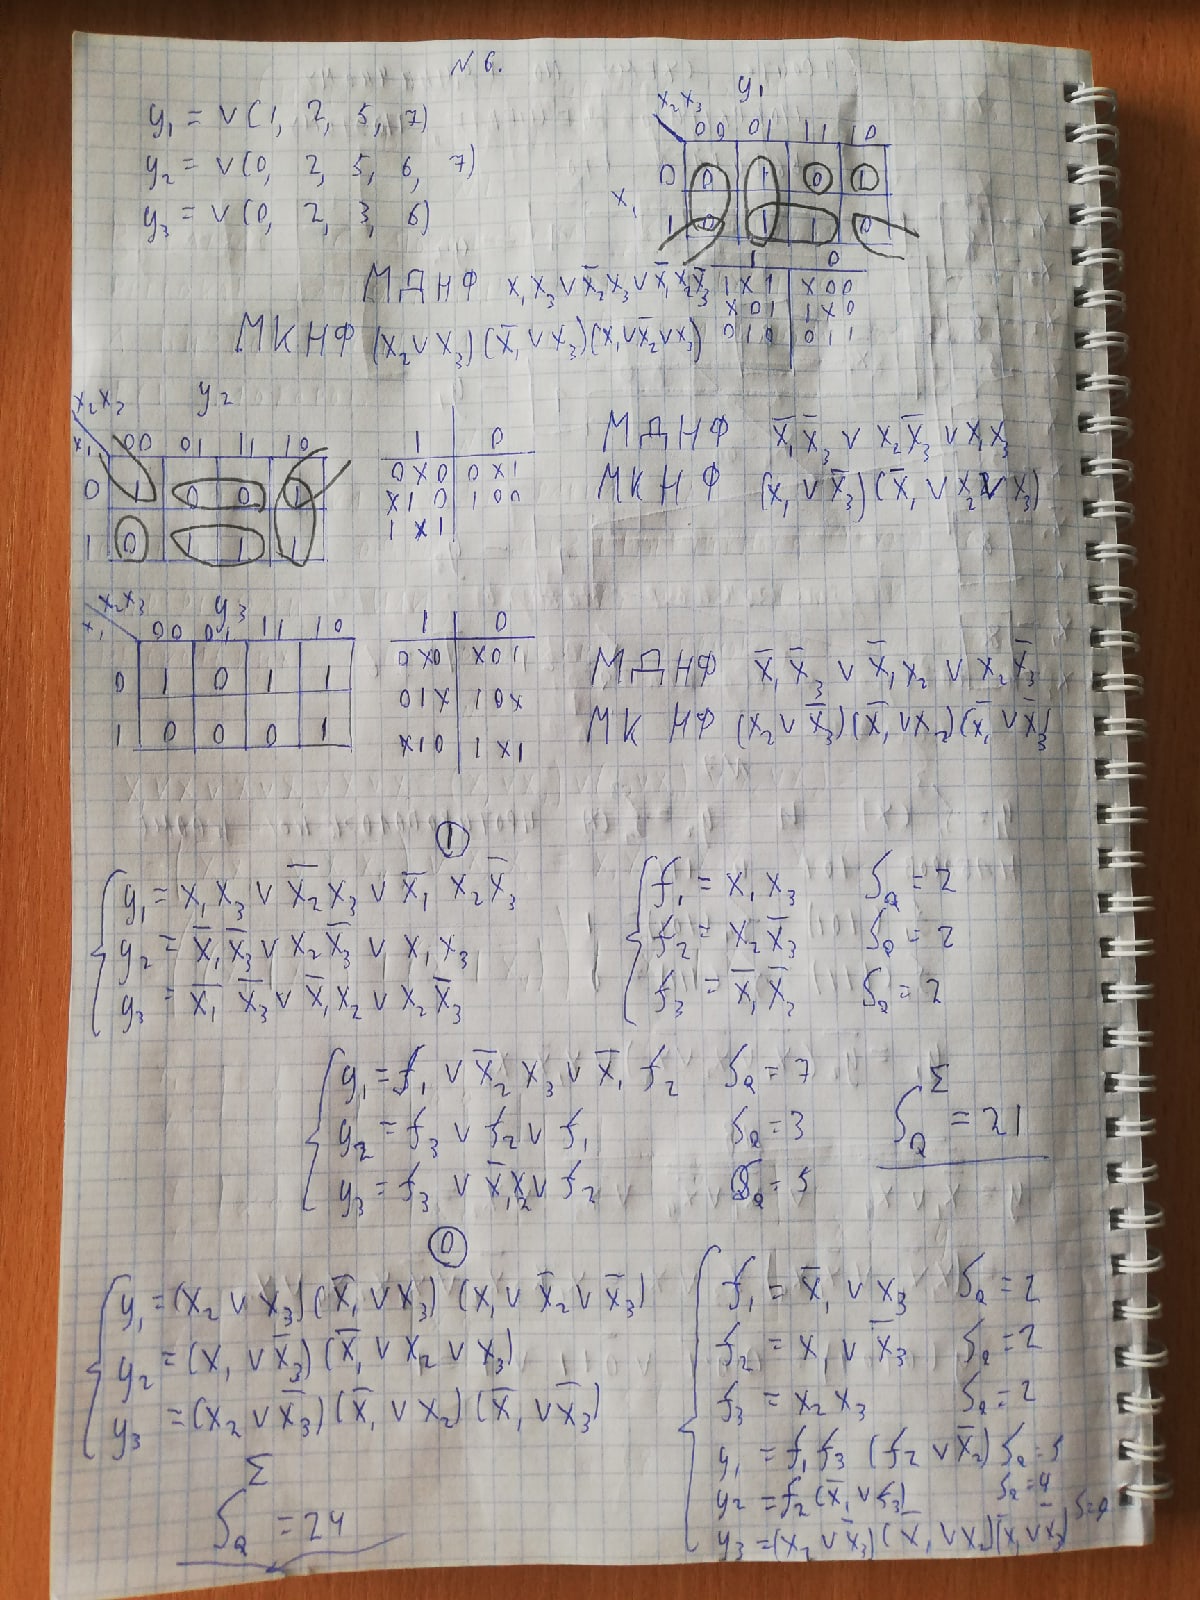 № 6.
y₁ = ∨(1, 2, 5, 7)
y₂ = ∨(0, 2, 5, 6, 7)
y₃ = ∨(0, 2, 3, 6)
y₁
x₂x₃
00 01 11 10
0 0 1 0 1
x₁
1 0 1 1 0
1 0
1x1 x00
x01 1x0
010 011
МДНФ x₁x₃ ∨ x̄₂x₃ ∨ x̄₁x₂x̄₃
МКНФ (x₂∨x₃)(x̄₁∨x₃)(x₁∨x̄₂∨x̄₃)
y₂
x₂x₂
x₁ 00 01 11 10
0 1 0 0 1
1 0 1 1 1
1 0
0x0 0x1
x10 100
1x1
МДНФ x̄₁x̄₃ ∨ x₂x̄₃ ∨ x₁x₃
МКНФ (x₁ ∨ x̄₃)(x̄₁ ∨ x₂ ∨ x₃)
y₃
x₂x₃
x₁ 00 01 11 10
0 1 0 1 1
1 0 0 0 1
1 0
0x0 x01
01x 10x
x10 1x1
МДНФ x̄₁x̄₃ ∨ x̄₁x₂ ∨ x₂x̄₃
МКНФ (x₂∨x̄₃)(x̄₁∨x₂)(x̄₁∨x̄₃)
1
y₁ = x₁x₃ ∨ x̄₂x₃ ∨ x̄₁ x₂x̄₃
y₂ = x̄₁x̄₃ ∨ x₂x̄₃ ∨ x₁x₃
y₃ = x̄₁ x̄₃ ∨ x̄₁x₂ ∨ x₂x̄₃
f₁ = x₁x₃ S_Q = 2
f₂ = x₂x̄₃ S_Q = 2
f₃ = x̄₁x̄₂ S_Q = 2
y₁ = f₁ ∨ x̄₂x₃ ∨ x̄₁f₂ S_Q = 7
y₂ = f₃ ∨ f₂ ∨ f₁ S_Q = 3
y₃ = f₃ ∨ x̄₁x₂ ∨ f₂ S_Q = 5
S_Q^Σ = 21
0
y₁ = (x₂ ∨ x₃)(x̄₁ ∨ x₃)(x₁ ∨ x̄₂ ∨ x̄₃)
y₂ = (x₁ ∨ x̄₃)(x̄₁ ∨ x₂ ∨ x₃)
y₃ = (x₂ ∨ x̄₃)(x̄₁ ∨ x₂)(x̄₁ ∨ x̄₃)
S_Q^Σ = 24
f₁ = x̄₁ ∨ x₃ S_Q = 2
f₂ = x₁ ∨ x̄₃ S_Q = 2
f₃ = x₂ x₃ S_Q = 2
y₁ = f₁f₃ (f₂ ∨ x̄₂) S_Q = 5
y₂ = f₂(x̄₁∨f₃) S_Q = 4
y₃ = (x₂∨x̄₃)(x̄₁∨x₂)(x̄₁∨x̄₃)